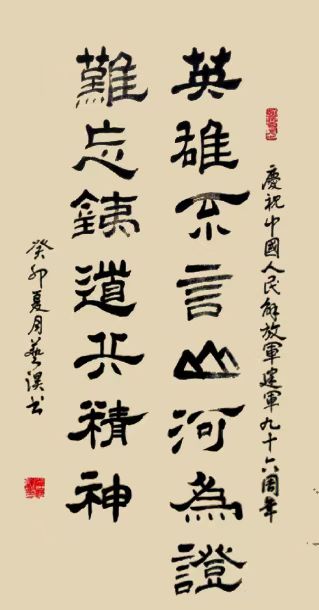 慶祝中國人民解放軍建軍九十六周年
英雄不言山河為證
難忘銕道兵精神
癸卯夏月藝书